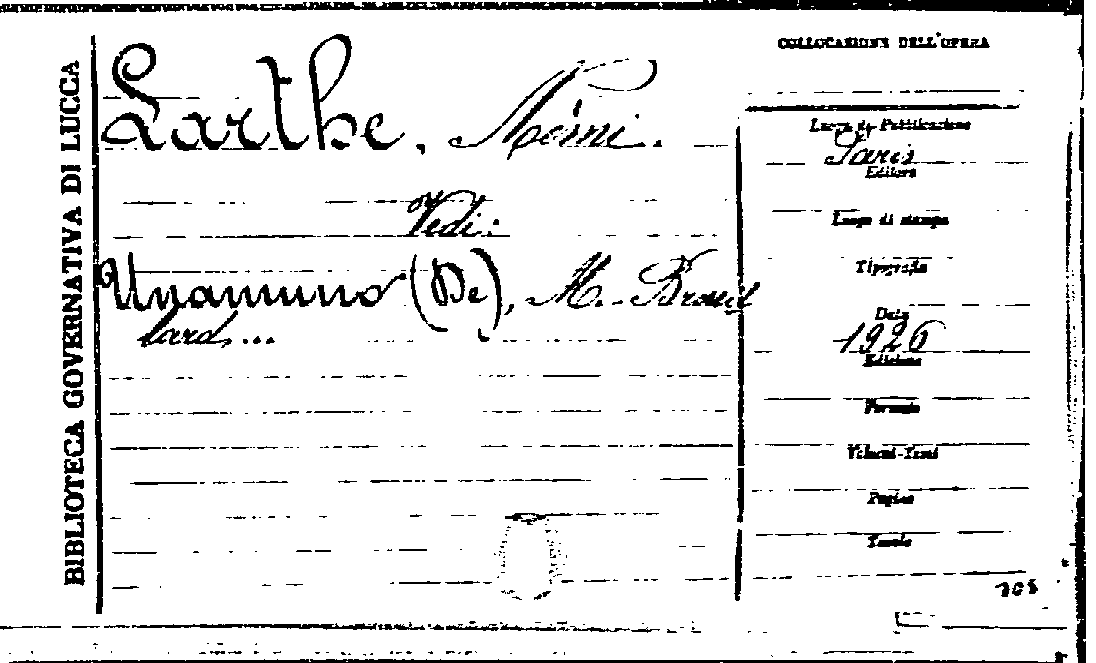 BIBLIOTECA GOVERNATIVA DI LUCCA
Larthe, Mémi.
Vedi:
Unamuno (De), M. - Brouil
lard,...
COLLOCAZIONE DELL'OPERA
Luogo di Pubblicazione
Paris
Editore
Luogo di stampa
Tipografia
Data
1926
Edizione
Formato
Volumi-Tomi
Pagine
Tavole